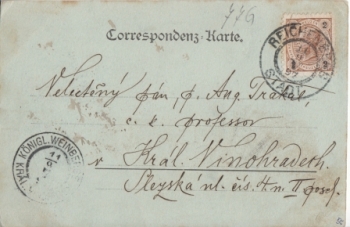 77G
Correspondenz-Karte.
REICHENBERG
STADT
Velectěný pan, p. Ang. Trakal
c. k. professor
v Král. Vinohradech
Slezská ul. čís. 4n. II posch.
KÖNIGL. WEINBERGE
KRÁL.